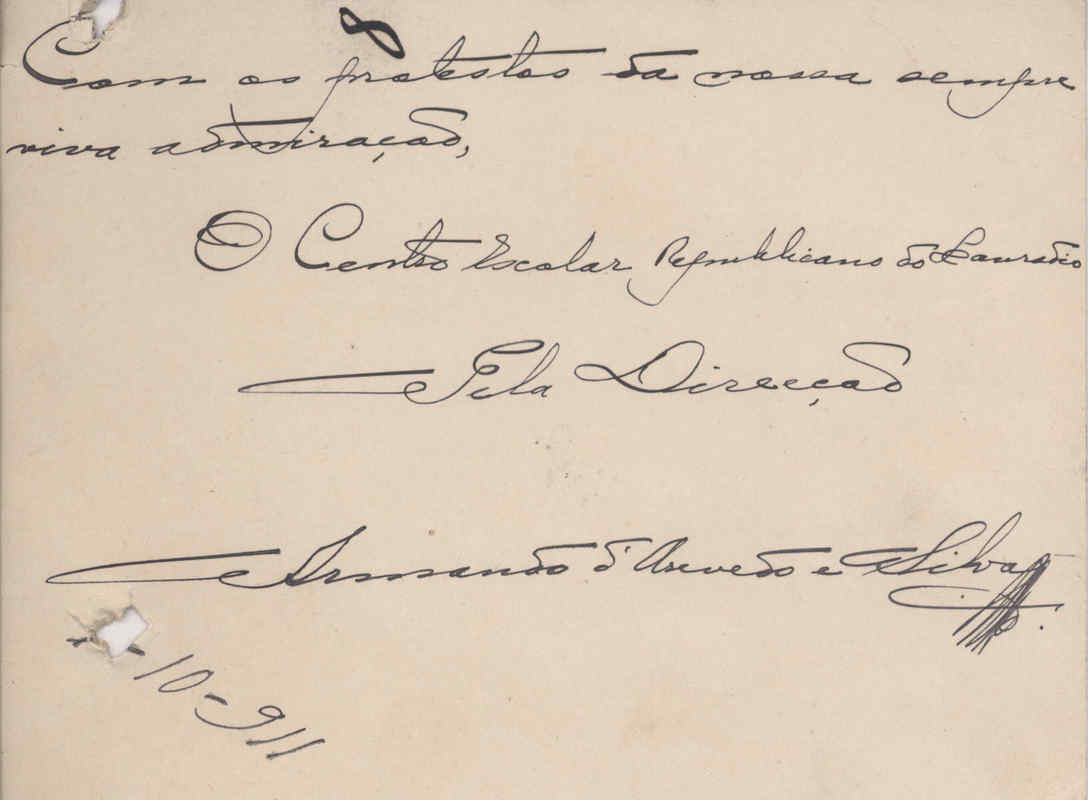 Com os protestos da nossa sempre
viva admiração,
O Centro Escolar Republicano do Lavradio
Pela Direcção
Armando d'Azevedo e Silva
-10-911